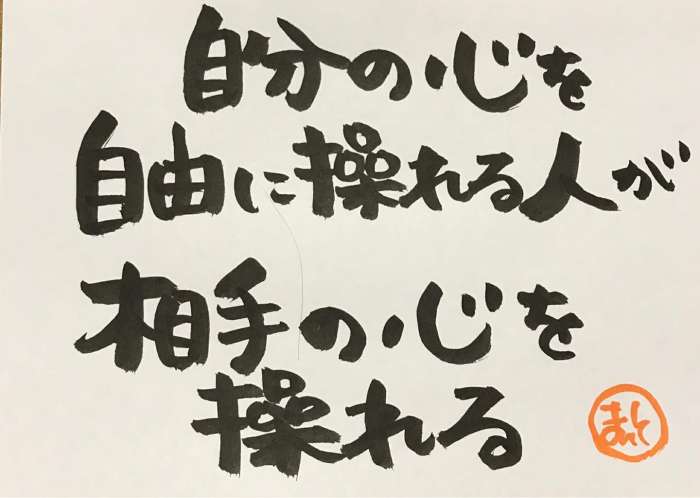 自分の心を
自由に操れる人が
相手の心を
操れる